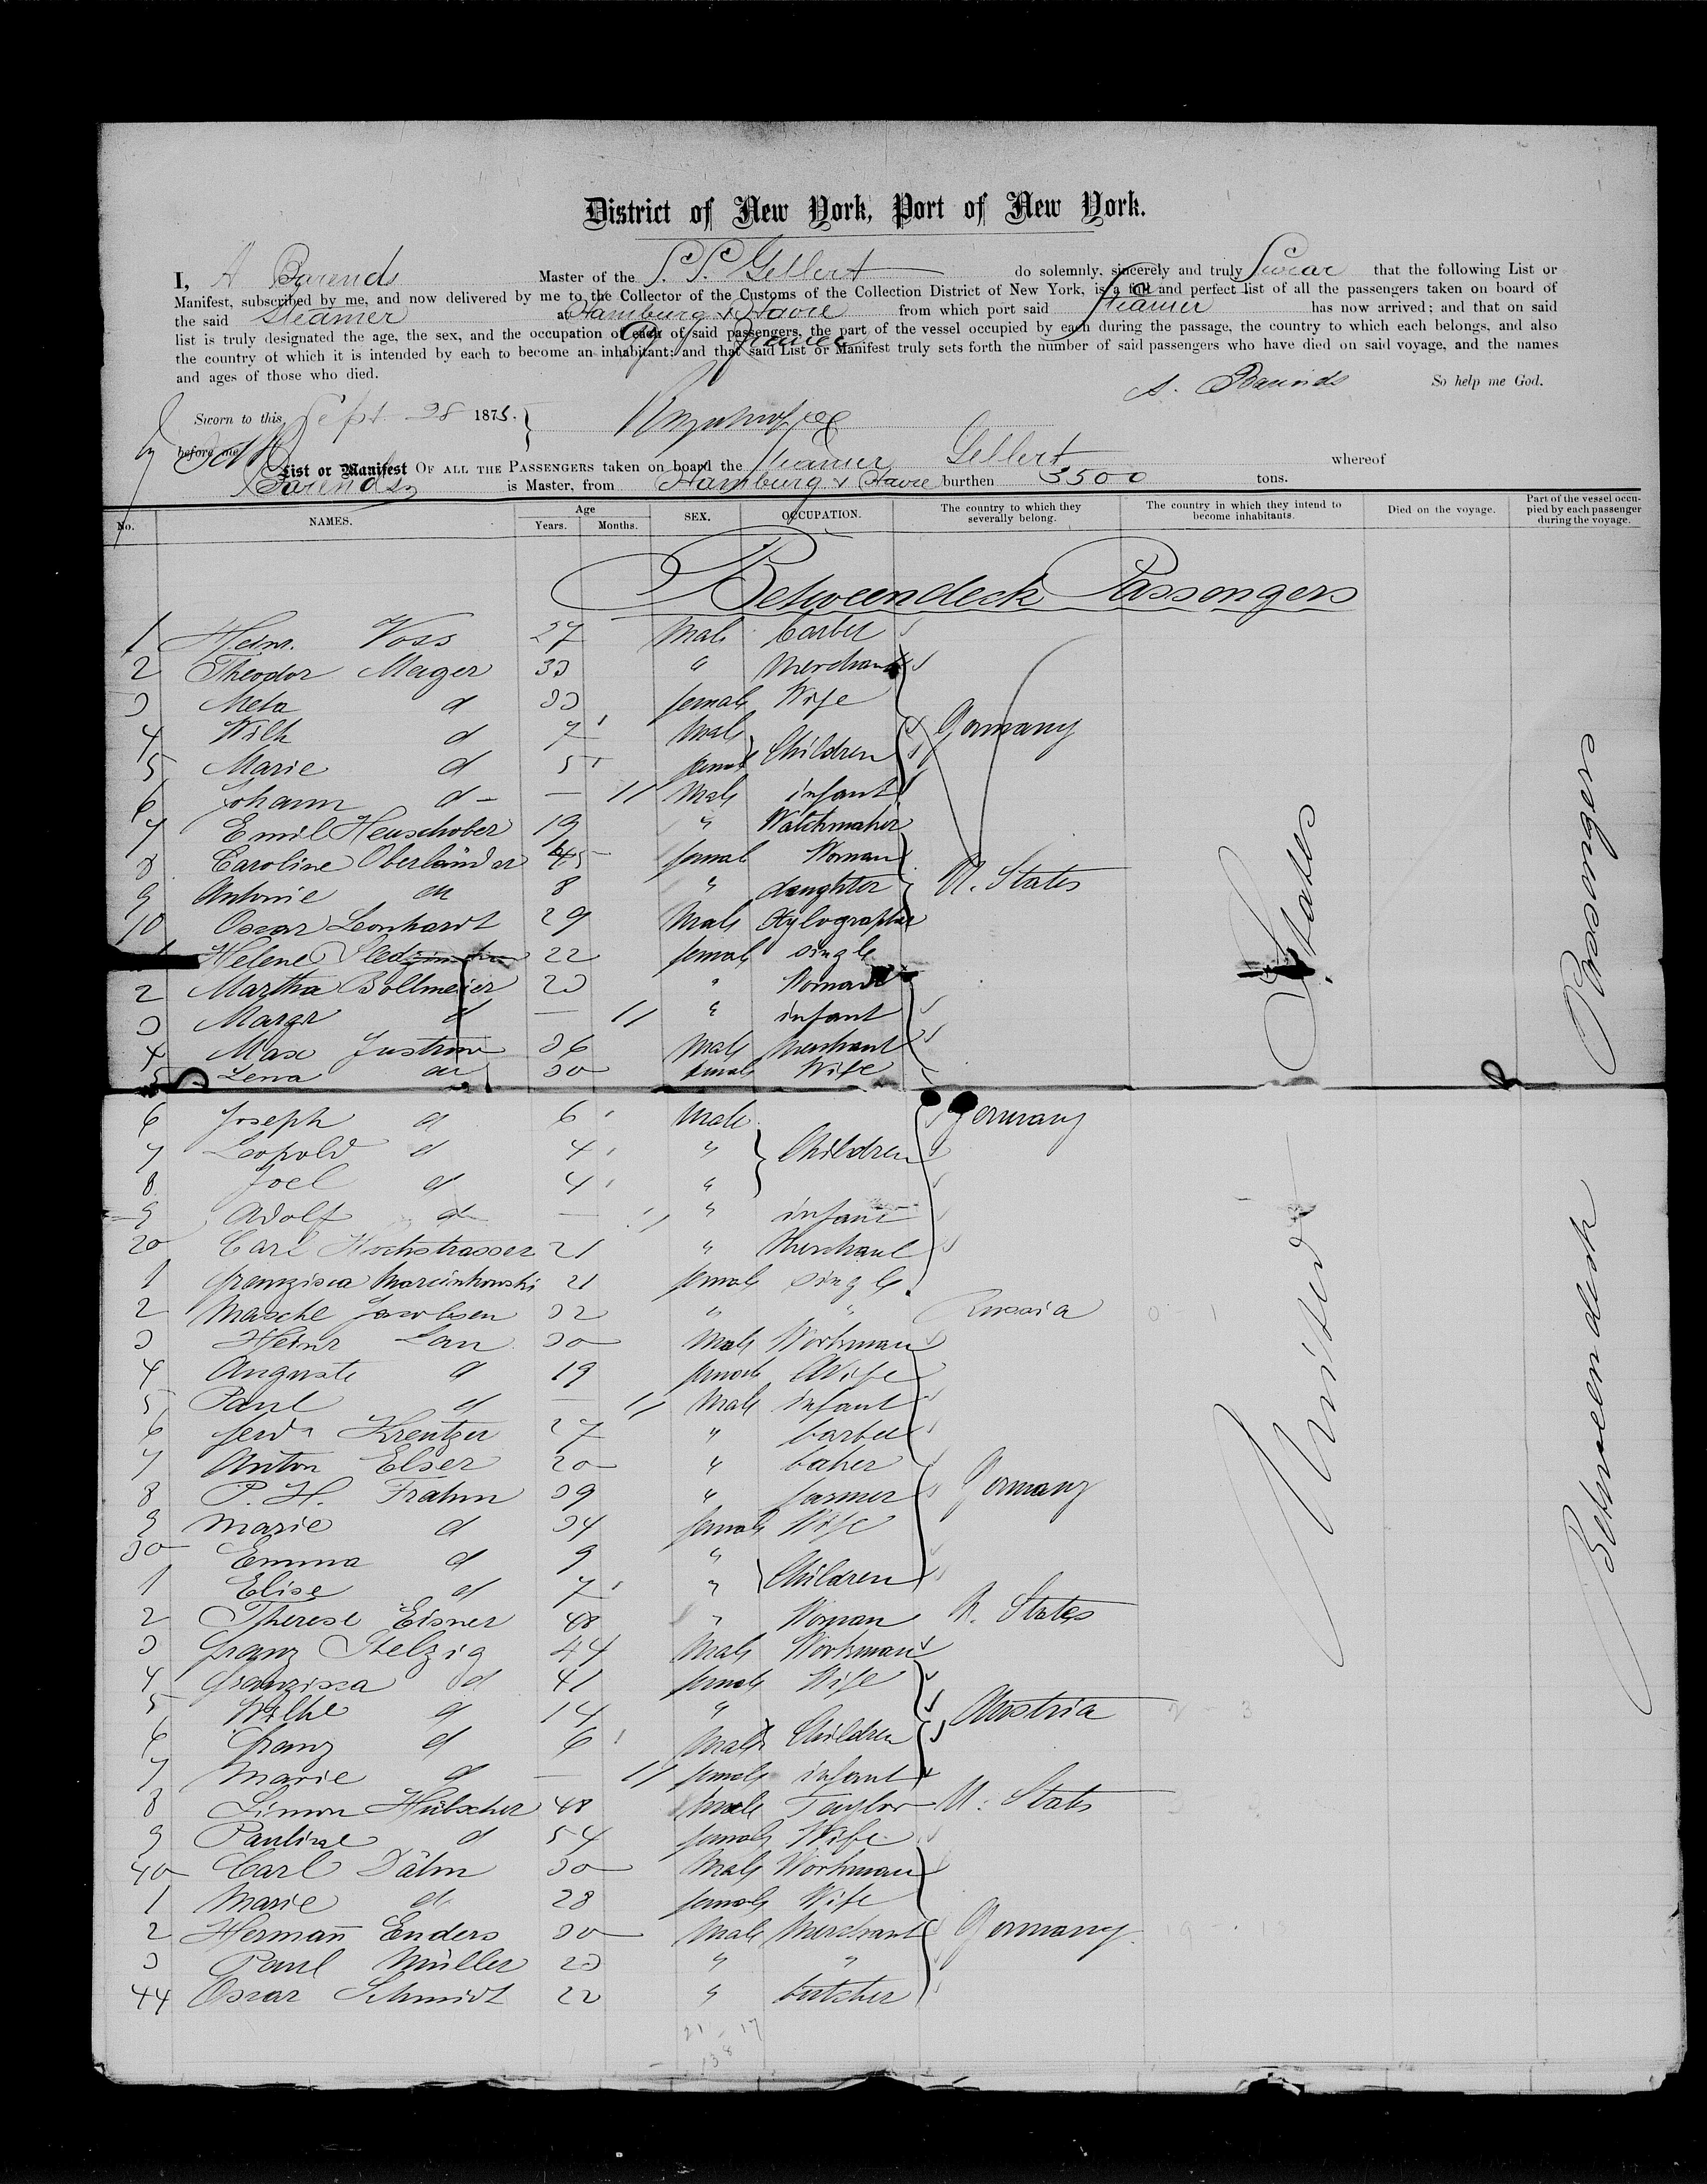 District of New York, Port of New York.
I, A Barends Master of the S.S. Gellert do solemnly, sincerely and truly Swear that the following List or
Manifest, subscribed by me, and now delivered by me to the Collector of the Customs of the Collection District of New York, is a full and perfect list of all the passengers taken on board of
the said Steamer at Hamburg & Havre from which port said Steamer has now arrived; and that on said
list is truly designated the age, the sex, and the occupation of each of said passengers, the part of the vessel occupied by each during the passage, the country to which each belongs, and also
the country of which it is intended by each to become an inhabitant: and that said List or Manifest truly sets forth the number of said passengers who have died on said voyage, and the names
and ages of those who died.
A. Barends So help me God.
Sworn to this Sept. 28 1875.
before me
List or Manifest OF ALL THE PASSENGERS taken on board the Steamer Gellert whereof
Barends is Master, from Hamburg & Havre burthen 3500 tons.
No. NAMES. Age Years. Months. SEX. OCCUPATION. The country to which they severally belong. The country in which they intend to become inhabitants. Died on the voyage. Part of the vessel occupied by each passenger during the voyage.
Betweendeck Passengers
1 Heinr. Voss 27 Male barber
2 Theodor Mager 33 " Merchant
3 Meta d 33 female Wife
4 Wilh d 7 Male Germany
5 Marie d 5 female Children
6 Johann d — 11 Male infant
7 Emil Heuschober 19 " Watchmaker
8 Caroline Oberländer 45 female Woman
9 Antonie d 8 " daughter U. States
10 Oscar Leonhardt 29 Male Xylographer
1 Helene 22 female single
2 Martha Bollmeier 23 " Woman
3 Margr d — 11 " infant
4 Max 36 Male Merchant
5 Lena d 30 female Wife
6 Joseph d 6 Male Germany
7 Leopold d 4 " Children
8 Joel d 4 "
9 Adolf d — 11 " infant
20 Carl Hochstrasser 21 " Merchant
1 Franzisca Marcinkowski 21 female single
2 Masche Jacobsen 32 " " Russia
3 Heinr Lau 30 Male Workman
4 Auguste d 19 female Wife
5 Paul d — 11 Male infant
6 Ferd. Kreutzer 27 " barber
7 Anton Elser 20 " baker
8 P. H. Frahm 39 " farmer Germany
9 Marie d 34 female Wife
30 Emma d 9 "
1 Elise d 7 " Children
2 Therese Eisner 48 " Woman U. States
3 Franz Stelzig 44 Male Workman
4 Franzisca d 41 female Wife
5 Wilhe d 14 " Austria
6 Franz d 6 Male Children
7 Marie d — 11 female infant
8 Simon Hübscher 48 Male Taylor U. States
9 Pauline d 54 female Wife
40 Carl Dähn 30 Male Workman
1 Marie d 28 female Wife
2 Hermann Enders 30 Male Merchant Germany
3 Paul Müller 23 " "
44 Oscar Schmidt 22 " butcher
United States
Betweendeck Passengers